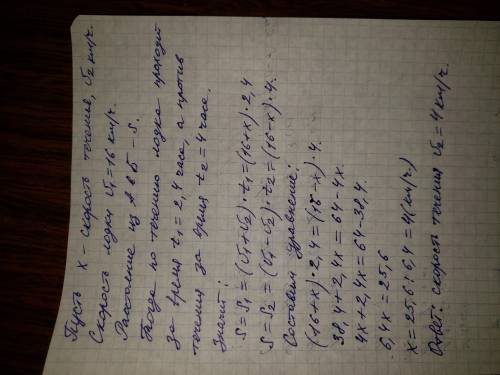 Пусть x - скорость течения, v2 км/ч.
Скорость лодки v1 = 16 км/ч.
Расстояние из А в Б - S.
Тогда по течению лодка проходит
за время t1 = 2,4 часа, а против
течения за время t2 = 4 часа.
Значит:
S = S1 = (v1+v2)·t1 = (16+x)·2,4
S = S2 = (v1-v2)·t2 = (16-x)·4.
Составим уравнение:
(16+x)·2,4 = (16-x)·4.
38,4 + 2,4x = 64 - 4x.
4x + 2,4x = 64 - 38,4.
6,4x = 25,6
x = 25,6 : 6,4 = 4 (км/ч)
Ответ: скорость течения v2 = 4 км/ч.